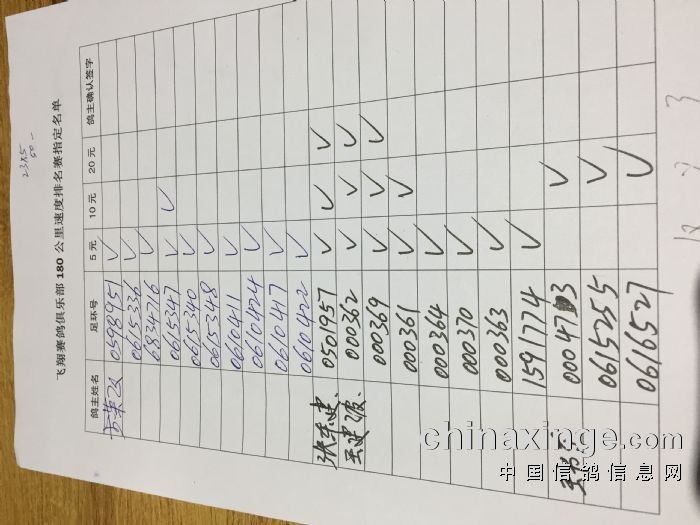 飞翔赛鸽俱乐部 180 公里速度排名赛指定名单
鸽主姓名 足环号 5 元 10 元 20 元 鸽主确认签字
0598951 ✓
0615336 ✓
6834716 ✓
0615347 ✓ ✓
0615340 ✓
0615348 ✓
0610411 ✓
0610424 ✓
0610417 ✓
0610422 ✓
0501957 ✓ ✓ ✓
王建波 000362 ✓ ✓ ✓
000369 ✓ ✓ ✓
000361 ✓ ✓
000364 ✓
000370 ✓
000363 ✓
1591774 ✓
✓
0615255 ✓
0616527 ✓
chinaxinge.com
中国信鸽信息网